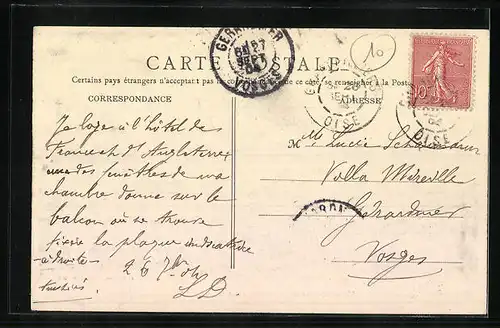 CARTE POSTALE
Certains pays étrangers n'acceptant pas la correspondance de ce côté, se renseigner à la Poste
CORRESPONDANCE
ADRESSE
10
GERARDMER
27
SEPT
VOSGES
OISE
10
OISE
Je loge à l'hôtel de
France et d'Angleterre
une des fenêtres de ma
chambre donne sur le
balcon où se trouve
fixée la plaque indicatrice
à droite
26 7bre 04
LD
M Lucie
Villa Mireille
Gérardmer
Vosges